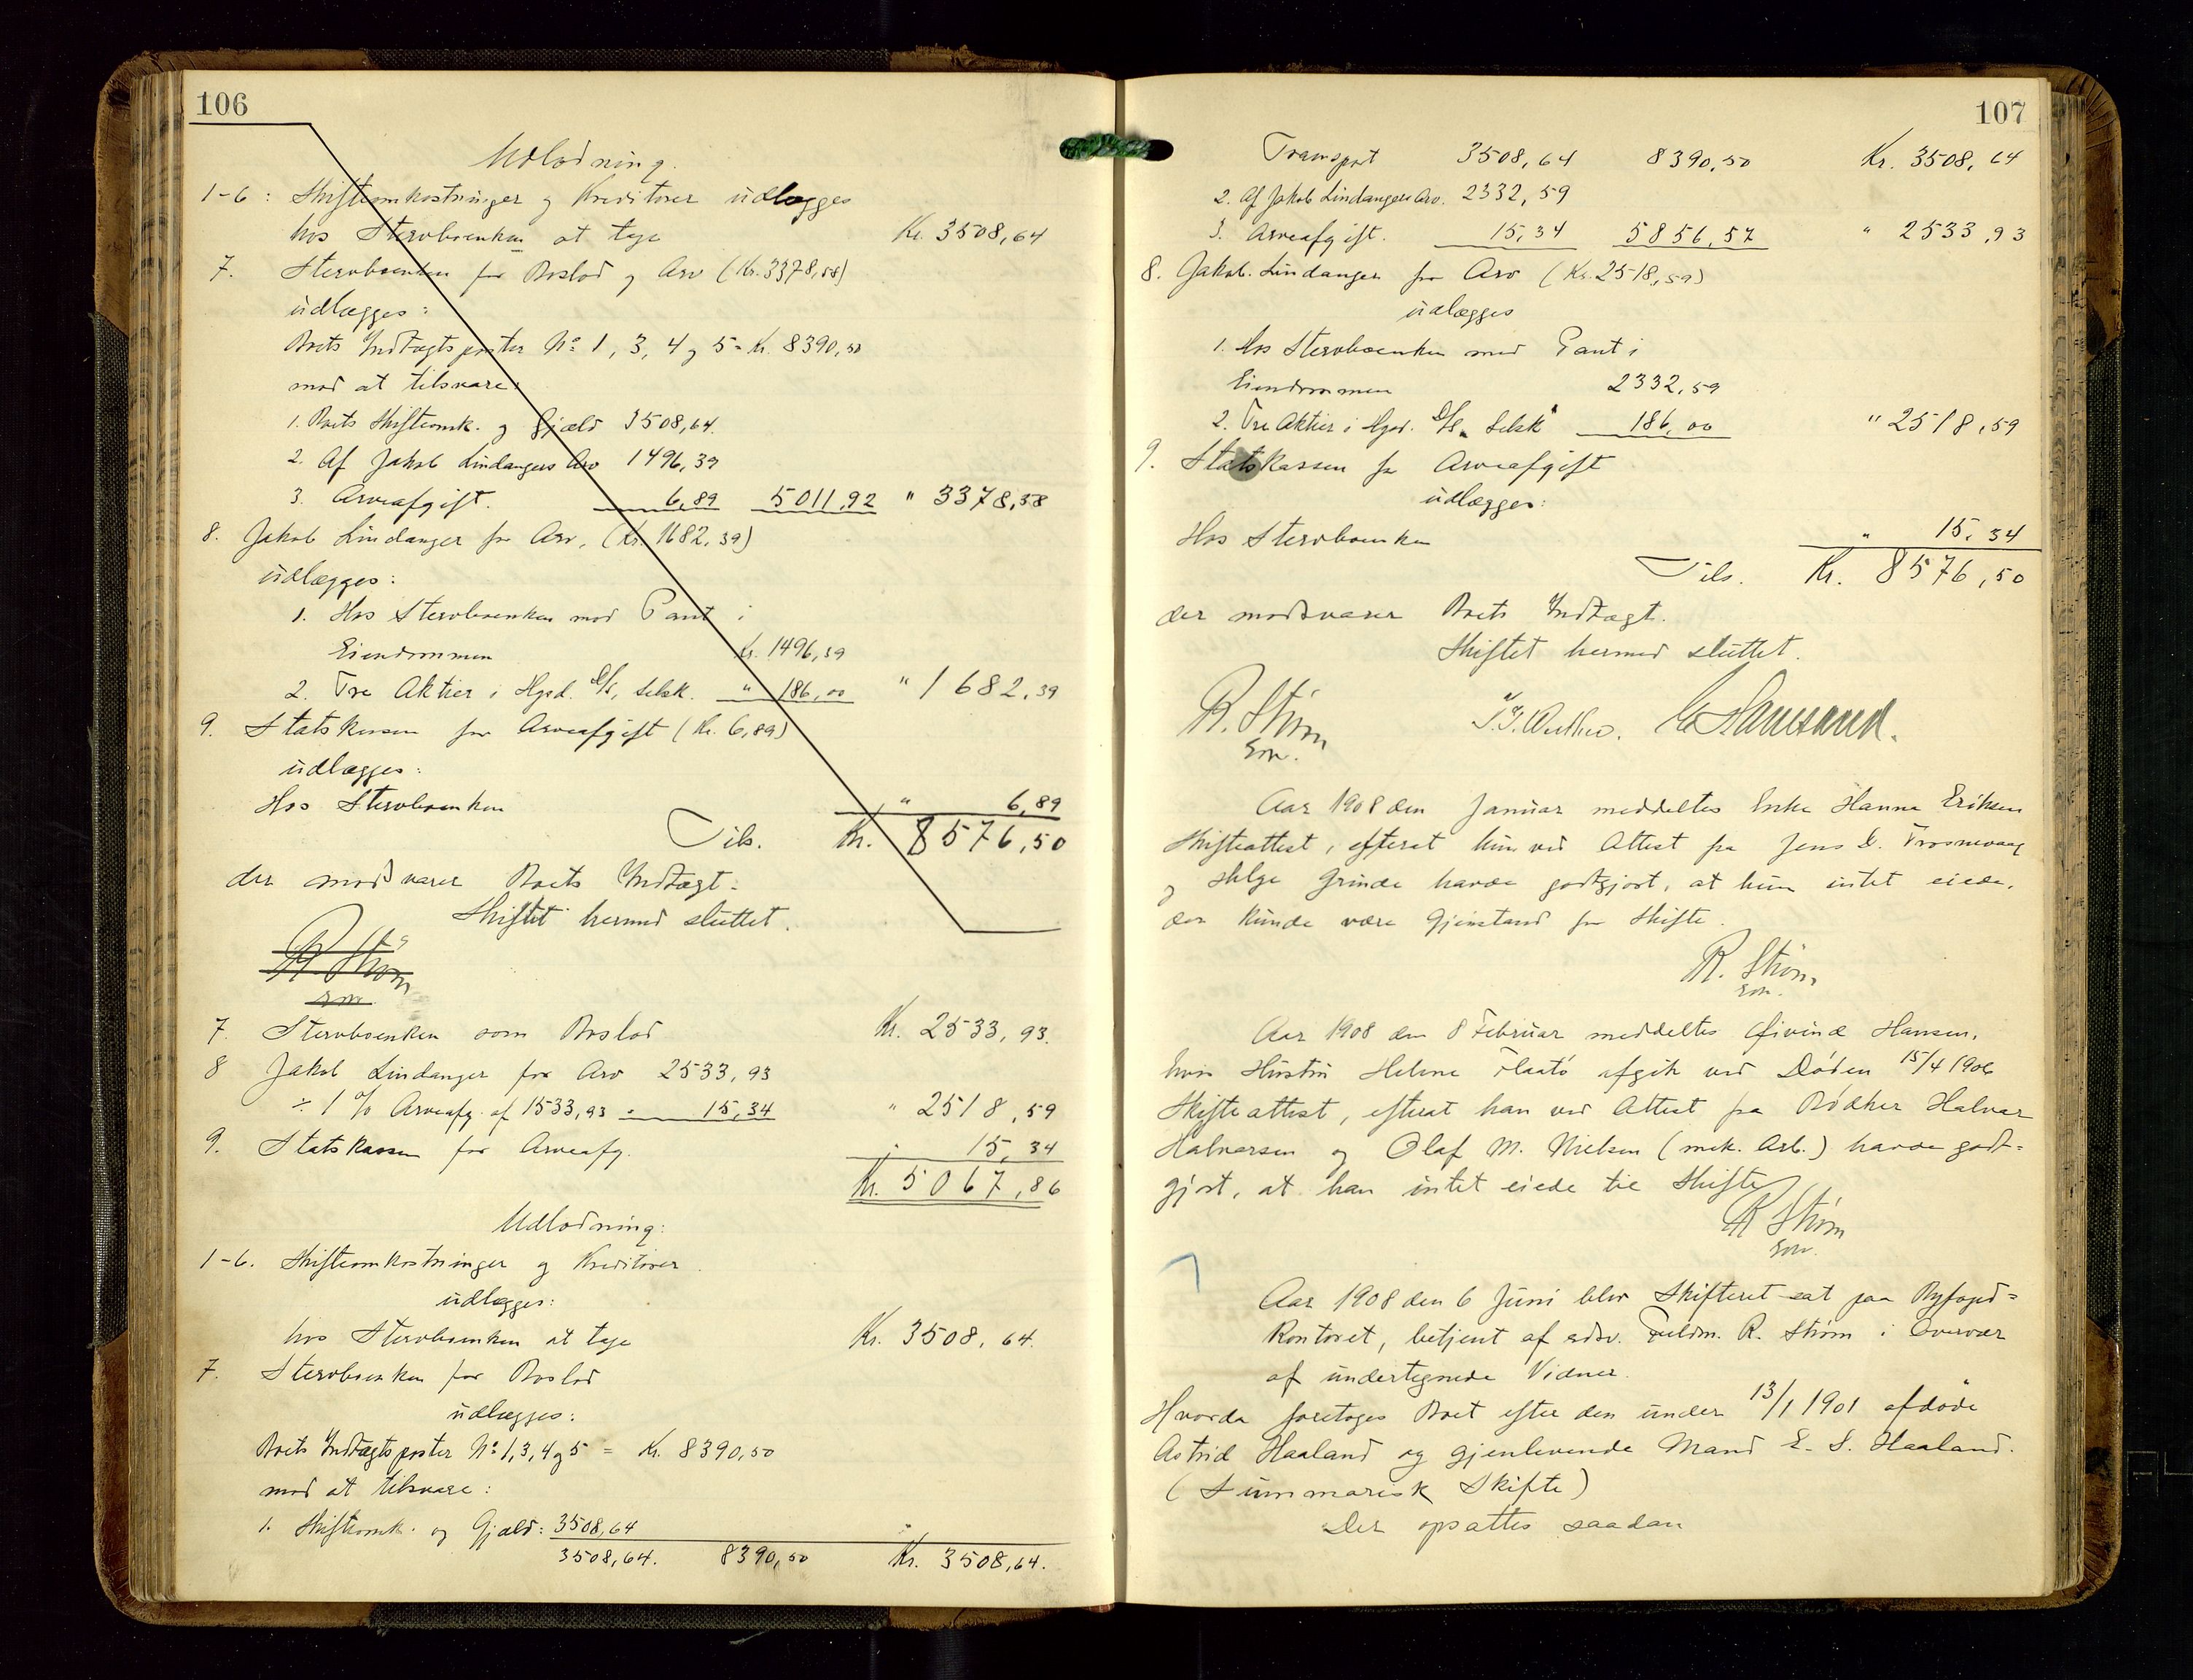 106
Udlodning.
1-6: Skifteomkostninger og Kreditorer udlægges
hos Stervboenken at tage Kr. 3508,64
7. Stervboenken for Boslod og Arv (Kr. 3378,58)
udlægges:
Boets Indtægtsposter No 1, 3, 4 og 5 = Kr. 8390,50
mod at tilsvare:
1. Boets Skifteomk. og Gjæld 3508,64.
2. Af Jakob Lindangers Arv 1496,39
3. Arveafgift. 6,89 5011,92 " 3378,58
8. Jakob Lindanger for Arv, (Kr. 1682,39)
udlægges:
1. Hos Stervboenken mod Pant i
Eiendommen Kr. 1496,39
2. Tre Aktier i Hgsd. D/S. Selsk. " 186,00 " 1682,39
9. Statskassen for Arveafgift (Kr. 6,89)
udlægges:
Hos Stervboenken " 6,89
Tils. Kr. 8576,50
der modsvarer Boets Indtægt.
Skiftet hermed sluttet.
R. Strøm
7. Stervboenken som Boslod Kr. 2533,93.
8 Jakob Lindanger for Arv 2533,93
÷ 1 % Arveafg. af 1533,93 = 15,34 " 2518,59
9. Statskassen for Arveafg. " 15,34
Kr. 5067,86
Udlodning:
1-6. Skifteomkostninger og Kreditorer.
udlægges:
hos Stervboenken at tage Kr. 3508,64.
7. Stervboenken for Boslod
udlægges:
Boets Indtægtsposter No 1, 3, 4 og 5 = Kr. 8390,50
mod at tilsvare:
1. Skifteomk. og Gjæld: 3508,64
3508,64. 8390,50 Kr. 3508,64.
107
Transport 3508,64 8390,50 Kr. 3508,64
2. Af Jakob Lindangers Arv. 2332,59
3. Arveafgift. 15,34 5856,57 " 2533,93
8. Jakob Lindanger for Arv (Kr. 2518,59)
udlægges
1. hos Stervboenken mod Pant i
Eiendommen 2332,59
2. Tre Aktier i Hgsd. D/S. Selsk. 186,00 " 2518,59
9. Statskassen for Arveafgift
udlægges:
Hos Stervboenken " 15,34
Tils. Kr. 8576,50
der modsvarer Boets Indtægt.
Skiftet hermed sluttet.
R. Strøm
Aar 1908 den Januar meddeltes Enke Hanna Eriksen
Skifteattest, efterat hun ved Attest fra Jens D. Trosnevaag
og Helge Grinde havde godtgjort, at hun intet eiede,
der kunde være Gjenstand for Skifte.
R. Strøm
Aar 1908 den 8 Februar meddeltes Øivind Hansen,
hvis Hustru Helene Flaatö afgik ved Døden 15/4 1906
Skifteattest, efterat han ved Attest fra Bødker Halvar
Halvarsen og Olaf M. Nielsen (mek. Arb.) havde godt=
gjort, at han intet eiede til Skifte
R Strøm
Aar 1908 den 6 Juni blev Skifteret sat paa Byfoged=
kontoret, betjent af edsv. Fuldm. R. Strøm i Overvær
af undertegnede Vidner.
Hvorda foretoges Boet efter den under 13/1 1901 afdøde
Astrid Haaland og gjenlevende Mand E. S. Haaland.
(Summarisk Skifte)
Der opsattes saadan